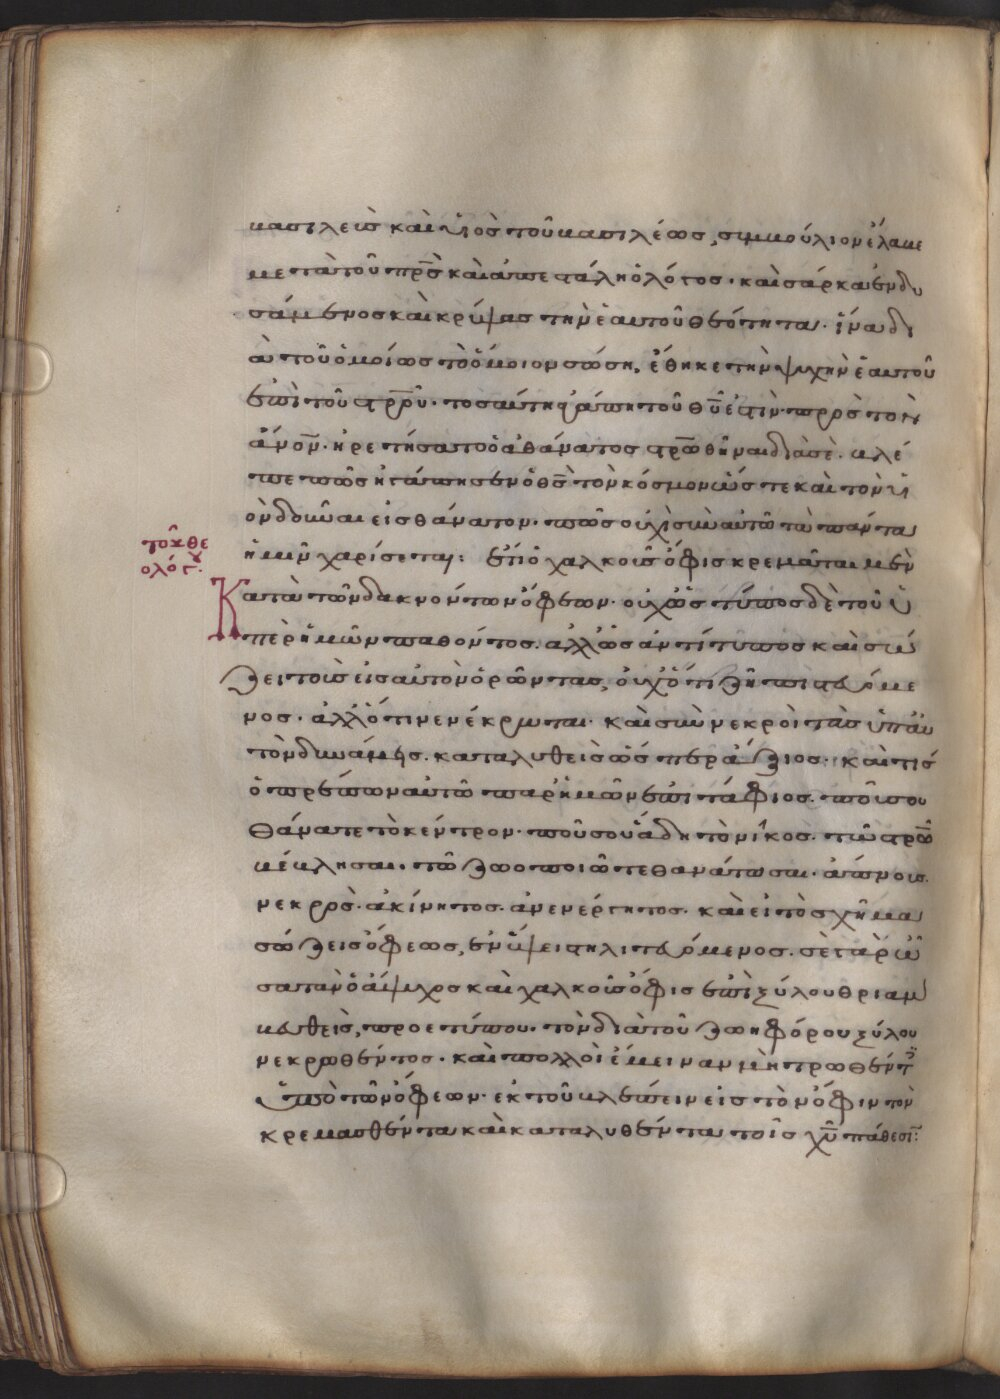 βασιλεὺς καὶ υἱὸς τοῦ βασιλέως, συμβούλιον ἔλαβε
μετὰ τοῦ πρ̅ς̅ καὶ ἀπεστάλη ὁ λόγος· καὶ σάρκα ἐνδυ
σάμενος καὶ κρύψας τὴν ἑαυτοῦ θεότητα· ἵνα δι
ὰ τοῦ ὁμοίως τὸ ὅμοιον σώση, ἔθηκε τὴν ψυχὴν ἑαυτοῦ
ἐπὶ τοῦ στρ̅ο̅ῦ· τοσαύτη ἀγάπη τοῦ θ̅υ̅ ἐστὶν πρὸς τὸν
ἄν̅ο̅ν̅· ἡρετήσατο ὁ ἀθάνατος στρ̅ω̅θῆναι διὰ σὲ· βλέ
πε πῶς ἠγάπησεν ὁ θ̅ς̅ τὸν κόσμον ὥστε καὶ τὸν υἱ
ὸν δοῦναι εἰς θάνατον· πῶς οὐχὶ σὺν αὐτῶ τὰ πάντα
ἡμῖν χαρίσεται: ἔτι ὁ χαλκοῦς ὄφις κρεμᾶται μὲν
τοῦ θε
ολόγου:
Κατὰ τῶν δακνόντων ὄφεων· οὐχ ὡς τύπος δὲ τοῦ ὑ
πὲρ ἡμῶν παθόντος· ἀλλ' ὡς ἀντίτυπος καὶ σώ
ζει τοὺς εἰς αὐτὸν ὁρῶντας, οὐχ ὅτι ζῆ πιστευόμε
νος· ἀλλ' ὅτι νενέκρωται· καὶ συννεκροῖ τὰς ὑπ' αὐ
τὸν δυνάμεις· καταλυθεὶς ὥσπερ ἄξιος· καὶ τίς
ὁ πρέπων αὐτῶ παρ' ἡμῶν ἐπιτάφιος· ποῦ σου
θάνατε τὸ κέντρον· ποῦ σου ἅδη τὸ νῖκος· τῶ στρ̅ῶ̅
βέβλησαι· τῶ ζωοποιῶ τεθανάτωσαι· ἄπνους·
νεκρὸς· ἀκίνητος· ἀνενέργητος· καὶ εἰ τὸ σχῆμα
σώζεις ὄφεως, ἐν ὕψει στηλιτευόμενος· σὲ γὰρ ὦ
σατὰν ὁ ἄψυχος καὶ χαλκοῦς ὄφις ἐπὶ ξύλου θριαμ
βευθεὶς, προετύπου· τὸν διὰ τοῦ ζωηφόρου ξύλου
νεκρωθέντος· καὶ πολλοὶ ἔμειναν μὴ τρωθέντ
ὑπὸ τῶν ὄφεων· ἐκ τοῦ βλέπειν εἰς τὸν ὄφιν τὸν
κρεμασθέντα καὶ καταλυθέντα τοῖς χ̅υ̅ πάθεσι: